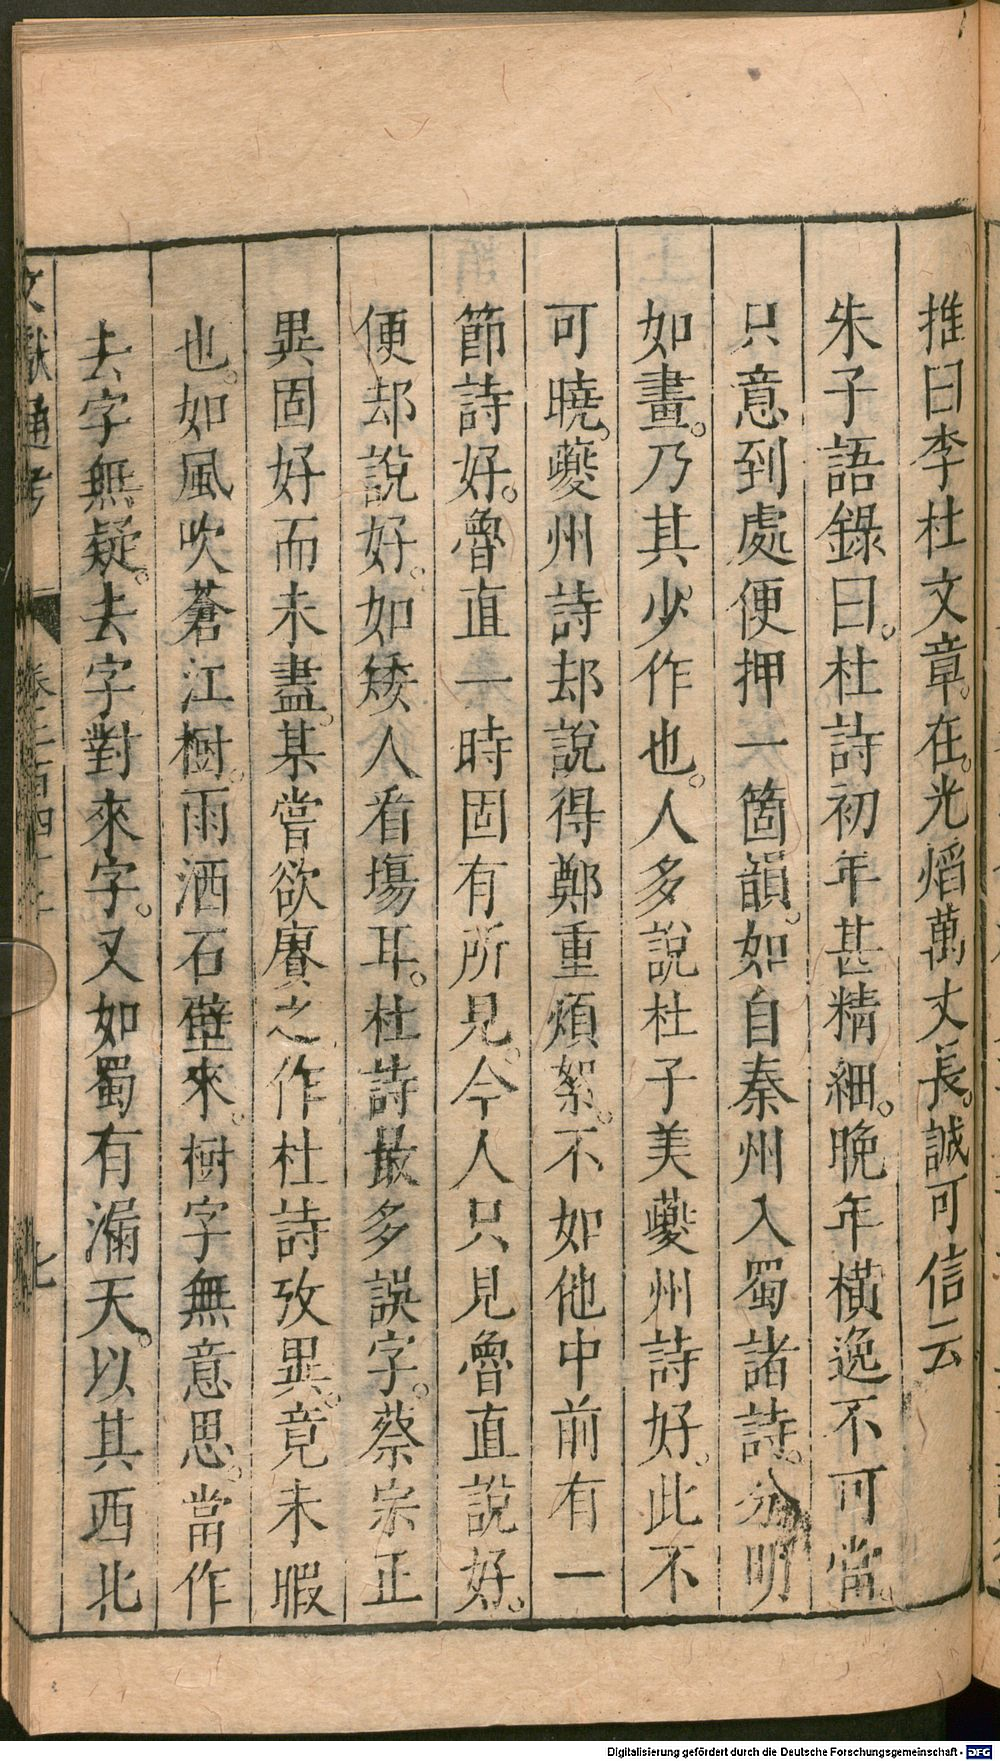 推曰李杜文章。在。光熖萬丈長。誠可信云
朱子語錄曰。杜詩初年甚精細。晚年橫逸不可當。
只意到處便押一箇韻。如自秦州入蜀諸詩。分明
如畫。乃其少作也。人多說杜子美夔州詩好。此不
可曉。夔州詩却說得鄭重煩絮。不如他中前有一
節詩好。魯直一時固有所見。今人只見魯直說好。
便却說好。如矮人看塲耳。杜詩最多誤字。蔡宗正
異固好而未盡。某嘗欲賡之作杜詩攷異。竟未暇
也。如風吹蒼江樹。雨洒石壁來。樹字無意思。當作
去字無疑。去字對來字。又如蜀有漏天。以其西北
文獻通考
卷二百四十二
七
Digitalisierung gefördert durch die Deutsche Forschungsgemeinschaft - DFG